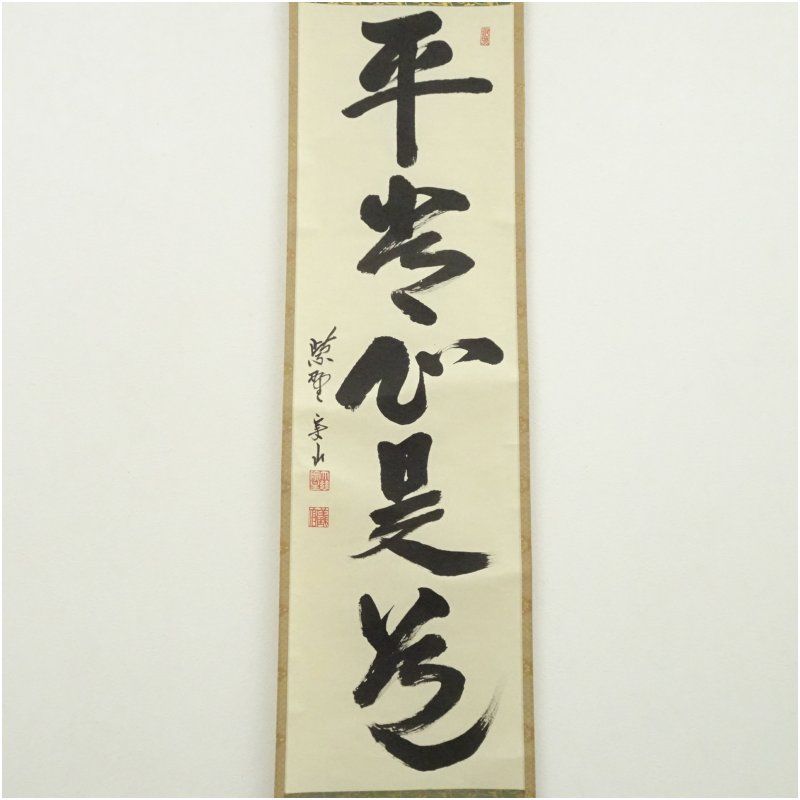 平常心是道
紫野